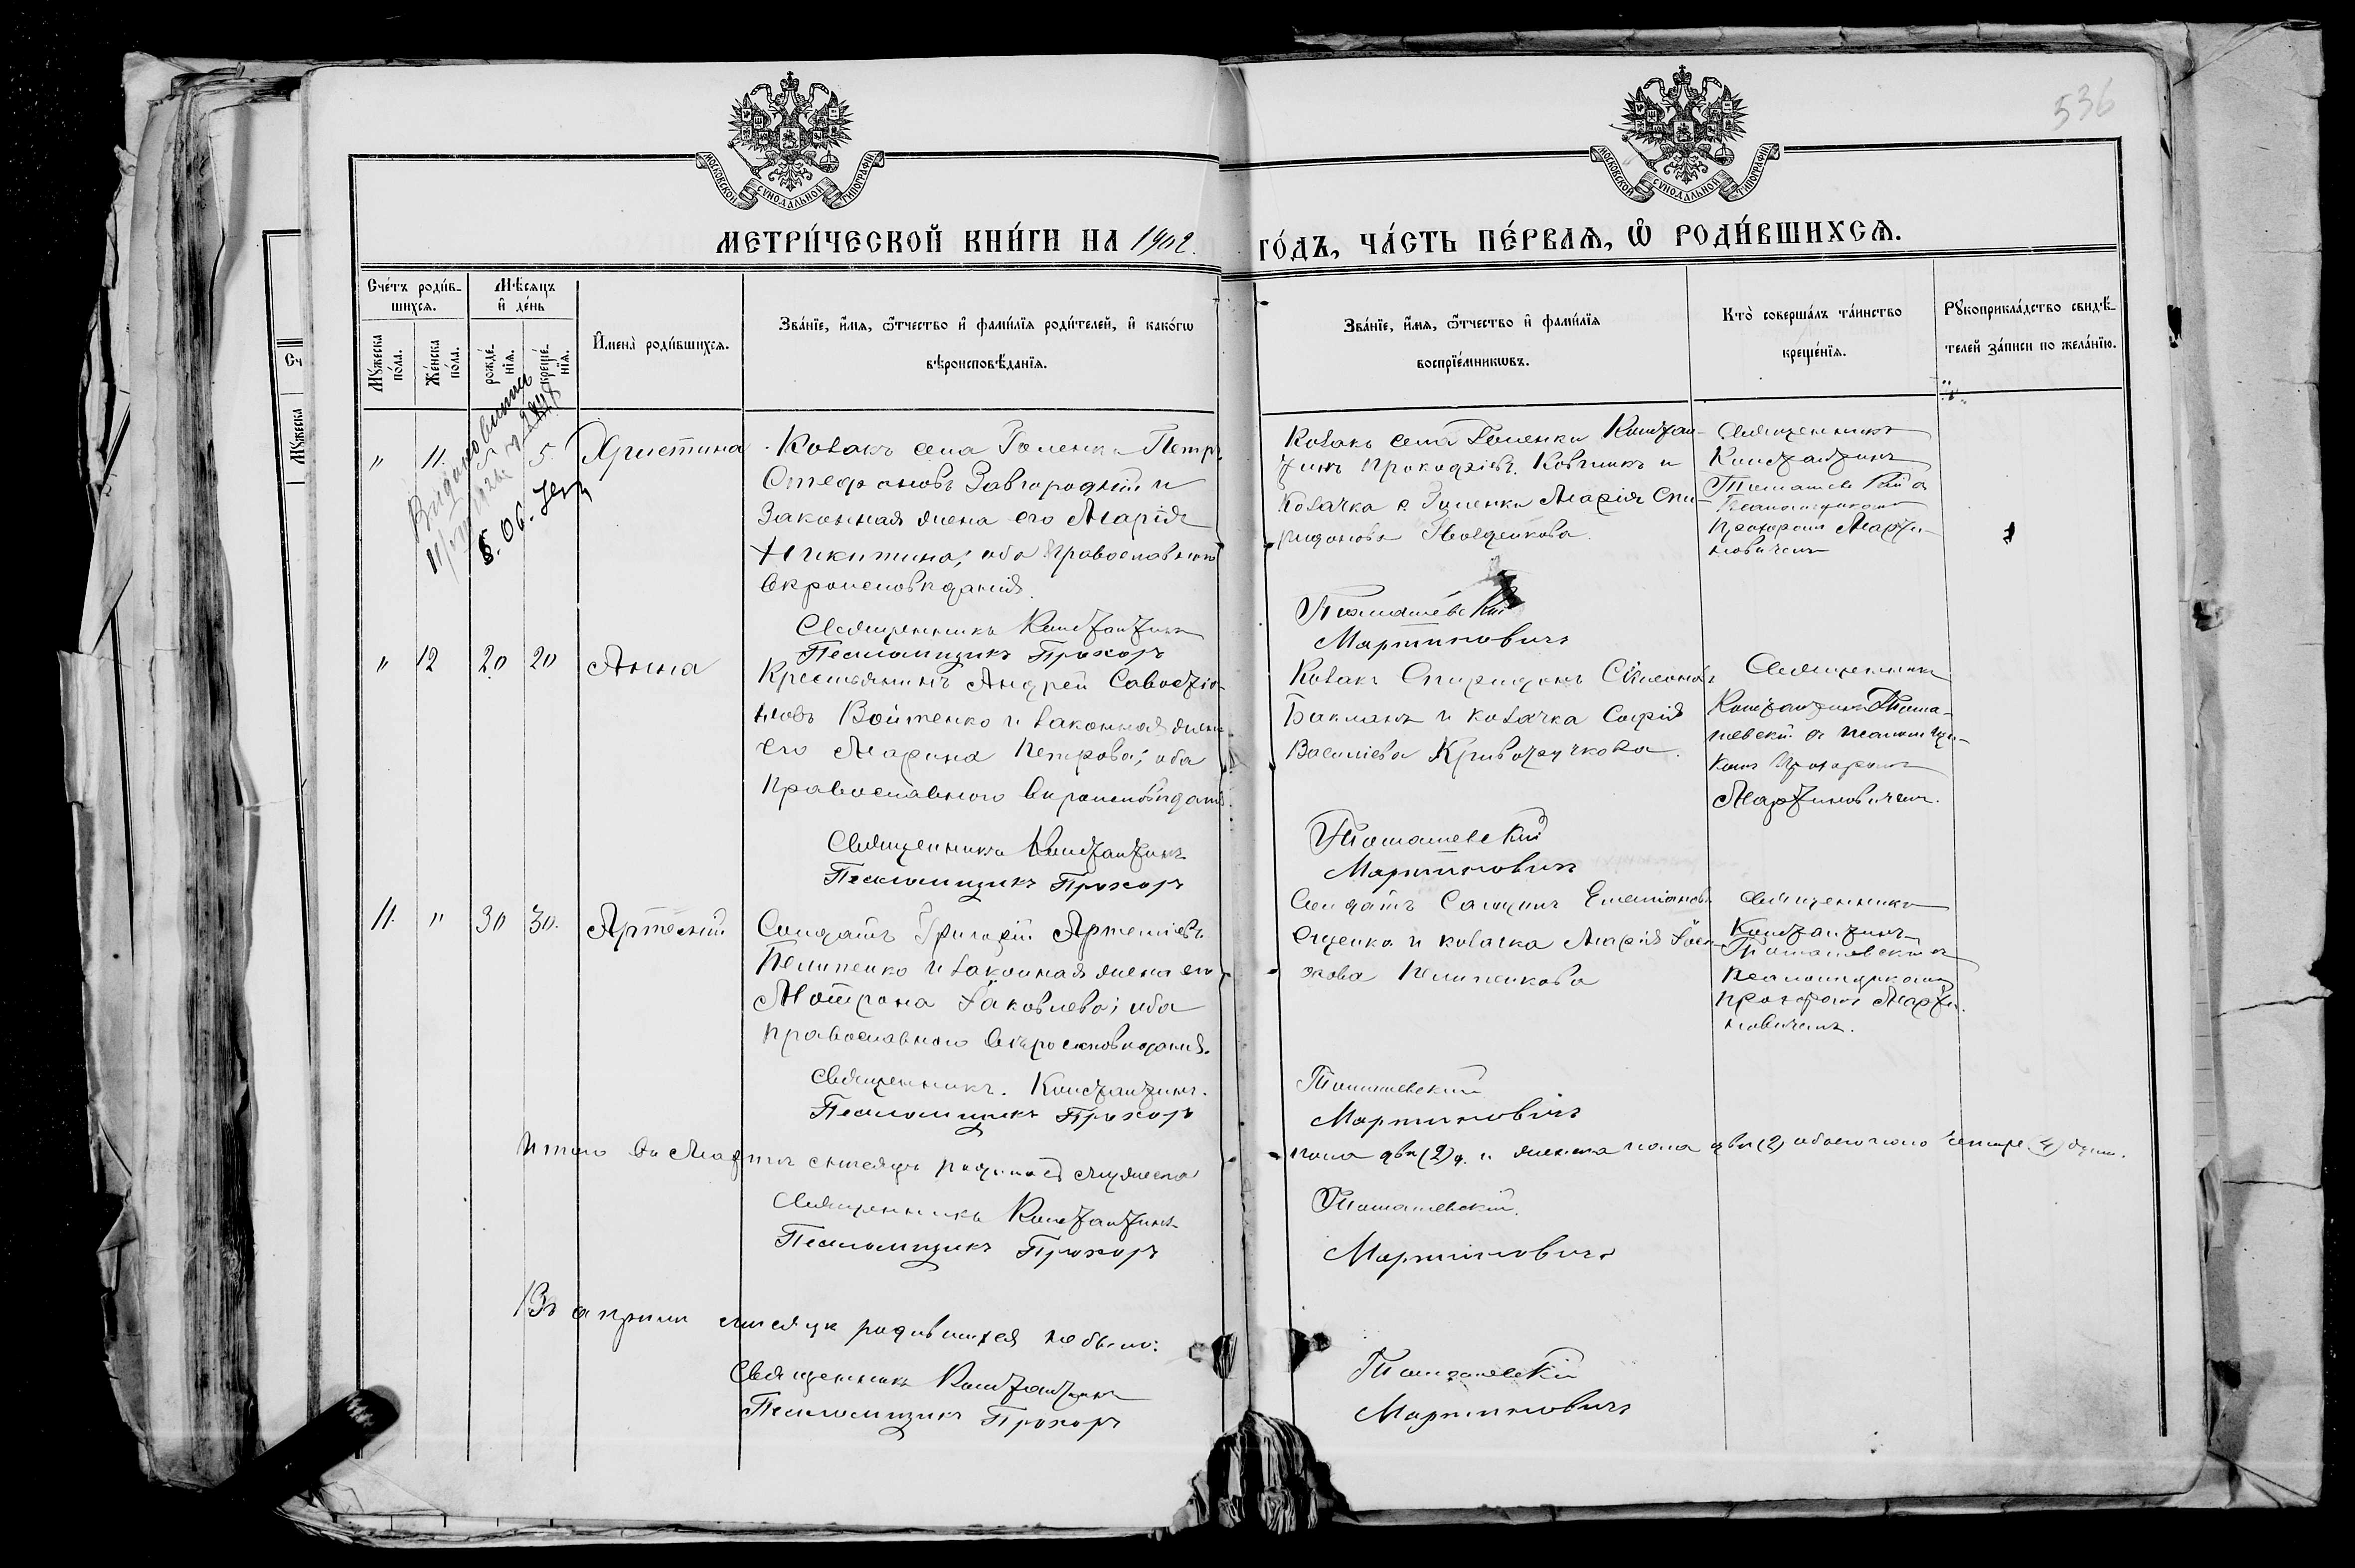 536
МОСКОВСКОЙ СѴНОДАЛЬНОЙ ТИПОГРАФІИ
МОСКОВСКОЙ СѴНОДАЛЬНОЙ ТИПОГРАФІИ
МЕТРИ́ЧЕСКОЙ КНИ́ГИ НА 1902. ГО́ДЪ, ЧА́СТЬ ПЕ́РВАѦ, Ѡ҆ РОДИ́ВШИХСѦ.
Сче́тъ роди́в-
шихся.
Мꙋ́жеска по́ла.
Же́нска по́ла.
Мѣ́сяцъ
и҆ де́нь
рожде́-
нїѧ.
креще́-
нїѧ.
И҆мена̀ роди́вшихсѧ.
Зва́нїе, и҆́мѧ, ѻ҆́тчество и҆ фами́лїѧ роди́телей, и҆ како́гѡ
вѣроисповѣ́данїѧ.
Зва́нїе, и҆́мѧ, ѻ҆́тчество и҆ фами́лїѧ
воспрїе́мникѡвъ.
Кто̀ соверша́лъ та́инство
креще́нїѧ.
Рꙋкоприкла́дство свидѣ́-
телей за́писи по жела́нїю.
" 11. 5. Христина
Козакъ села Гоменки Петръ
Стефановъ Завгородній и
Законная жена его Марія
Никитина; оба Православнаго
вѣроисповѣданія.
Священникъ Константинъ
Псаломщикъ Прохоръ
Козакъ села Гоменки Констан-
тинъ Прокофіевъ и
Козачка с. Гоменки Марія Спи-
ридонова
Томашевскій
Мартиновичъ
Священникъ
Константинъ
Прохоромъ Марти-
новичемъ
" 12 20 20 Анна
Крестьянинъ Андрей Савостіа-
новъ Войтенко и законная жена
его Марина Петрова; оба
Православнаго вѣроисповѣданія.
Священникъ Константинъ
Псаломщикъ Прохоръ
Козакъ Спиридонъ Симеоновъ
Бакланъ и козачка Софія
Василіева Криворучкова.
Томашевскій
Мартиновичъ
Священникъ
Константинъ Тома-
шевскій съ псаломщи-
комъ Прохоромъ
Мартиновичемъ.
11. " 30 30. Артемій
Солдатъ Григорій Артеміевъ
Пелипенко и законная жена его
Мотрона Іаковлева; оба
православнаго вѣроисповѣданія.
Священникъ. Константинъ.
Псаломщикъ Прохоръ
Солдатъ Емеліановъ
и козачка Марія
Пелипенкова
Томашевскій
Мартиновичъ
Священникъ
Константинъ
Томашевскій съ
псаломщикомъ
Прохоромъ Марти-
новичемъ.
Итого въ Мартѣ мѣсяцѣ родилось мужеска пола два (2) д. и женска пола два (2) обоего пола четыре (4) душ.
Священникъ Константинъ Томашевскій.
Псаломщикъ Прохоръ Мартиновичъ
Въ апрѣлѣ мѣсяцѣ родившихся не было:
Священникъ Константинъ Томашевскій
Псаломщикъ Прохоръ Мартиновичъ